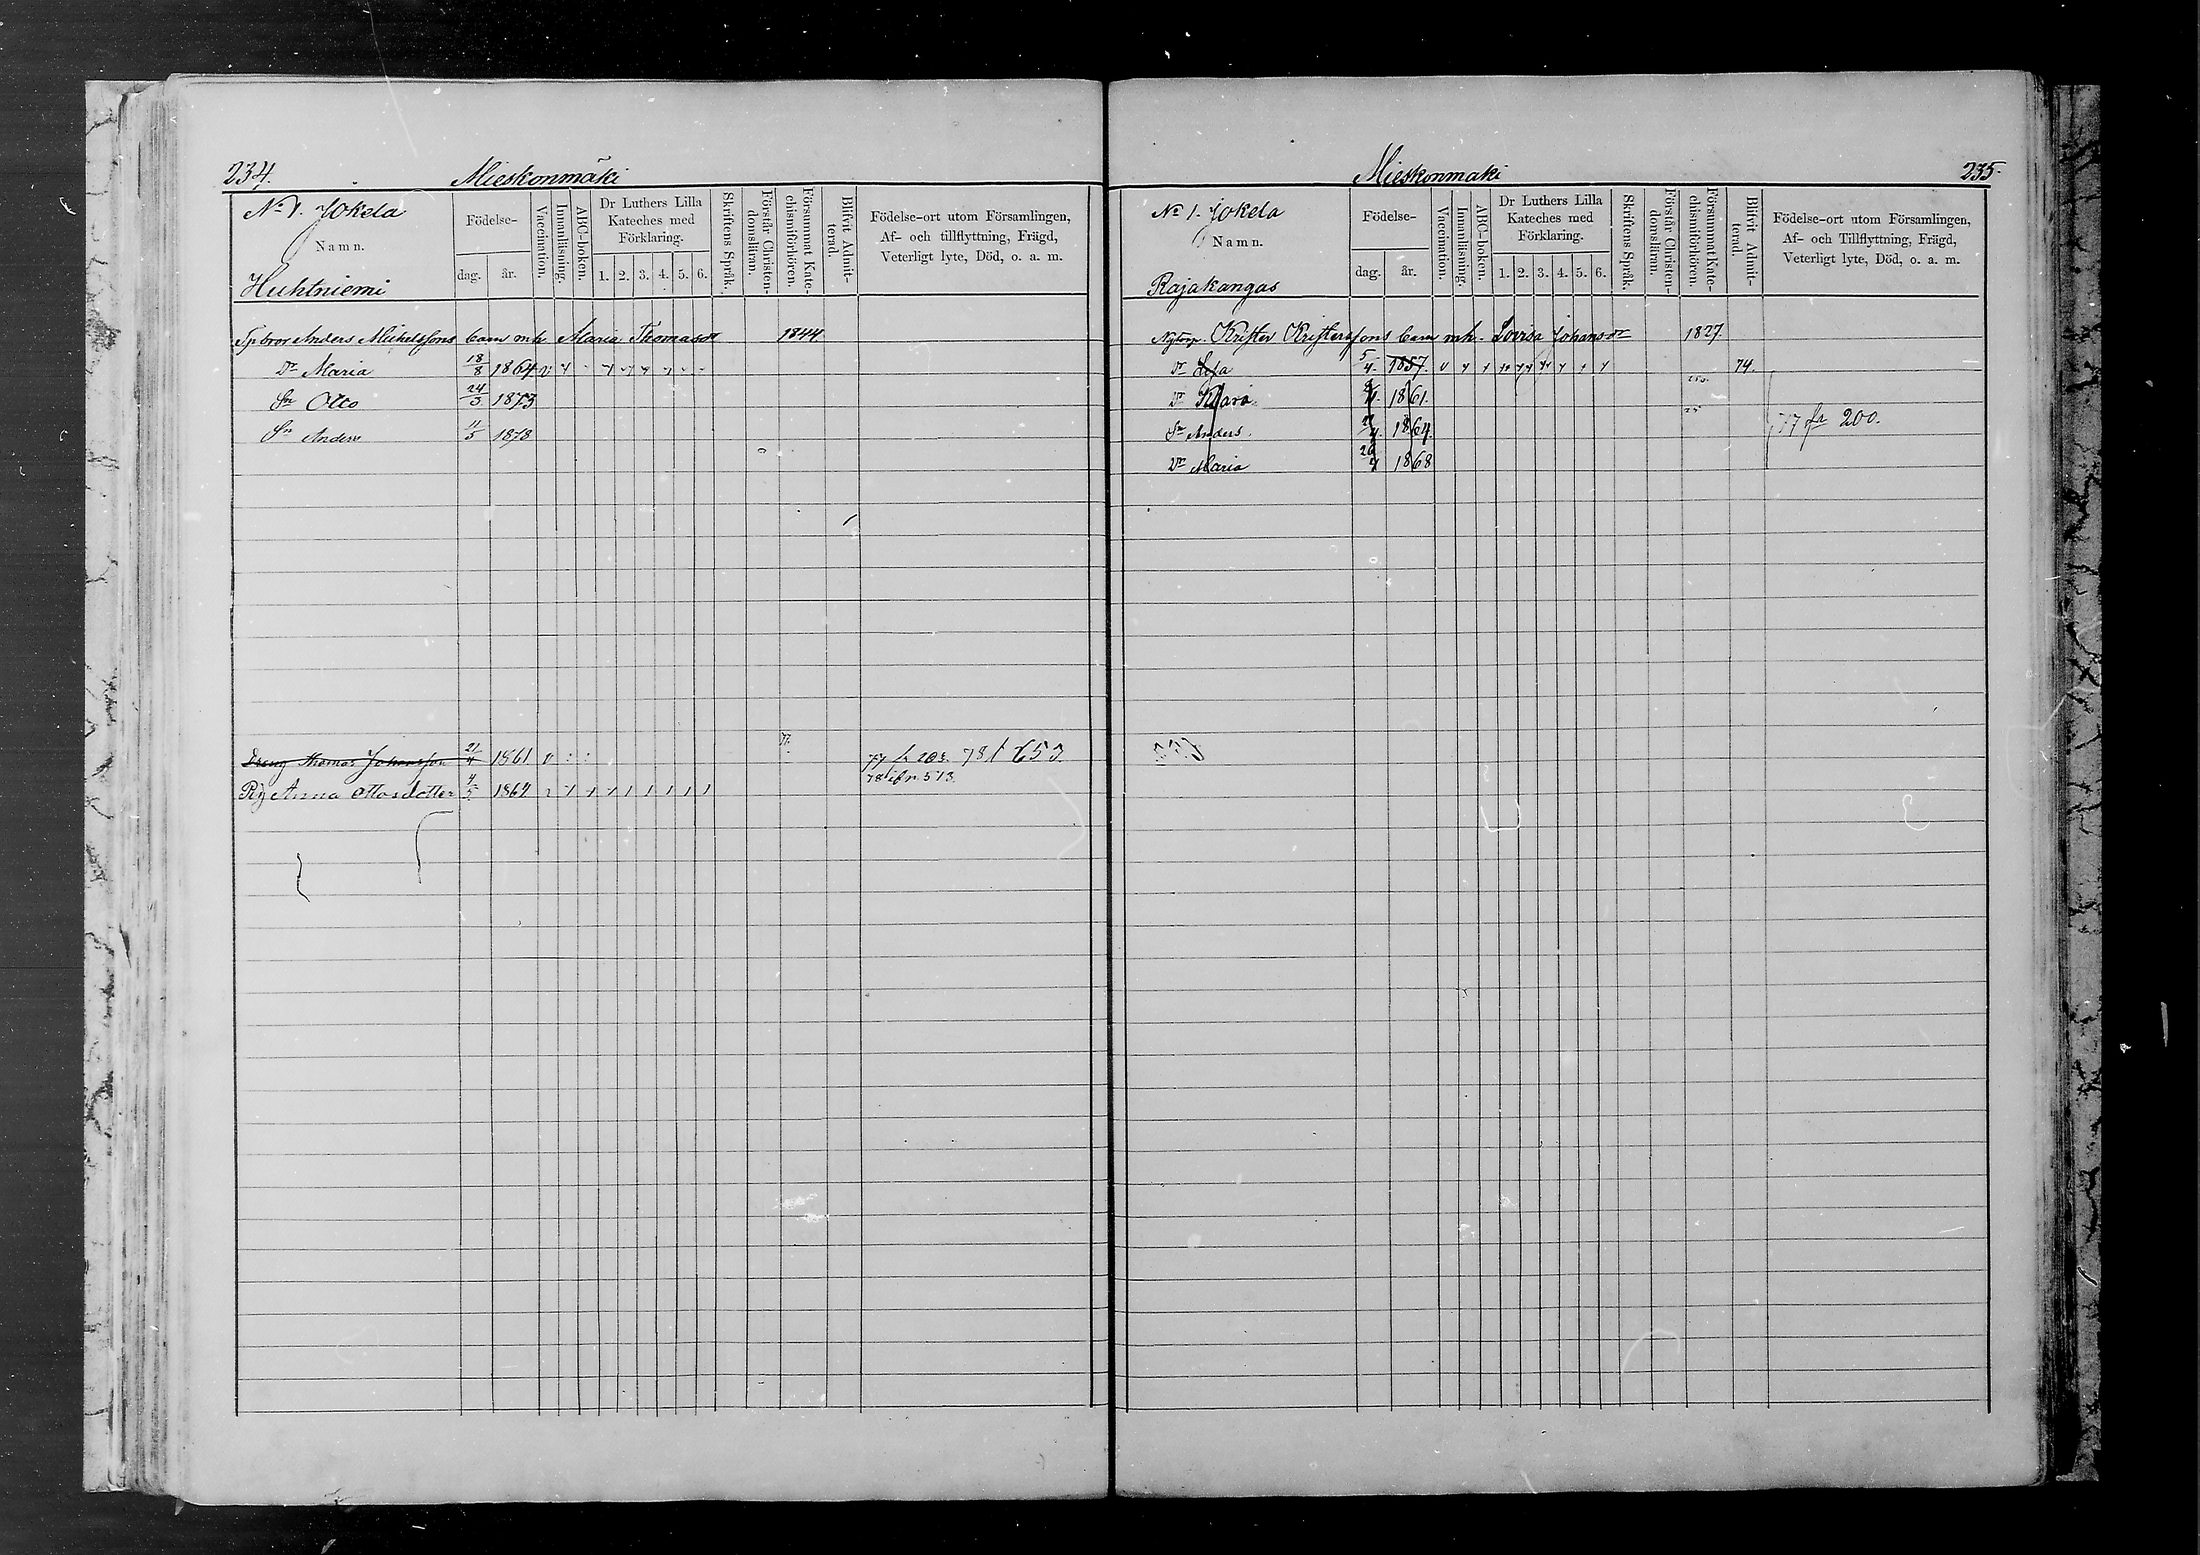 234. Mieskonmäki
No 1. Jokela
Namn.
Huhtniemi
Födelse-
dag. år.
Vaccination.
Innanläsning.
ABC-boken.
Dr Luthers Lilla
Kateches med
Förklaring.
1. 2. 3. 4. 5. 6.
Skriftens Språk.
Förstår Christen-
domsläran.
Försummat Kate-
chismiförhören.
Blifvit Admit-
terad.
Födelse-ort utom Församlingen,
Af- och tillflyttning, Frägd,
Veterligt lyte, Död, o. a. m.
Anders Michelssons barn mh. Maria Thomasdr 1844
Dr Maria 18/8 1864
Sn Otto 24/3 1873
Sn Anders 11/5 1878
Dreng Thomas Johansson 21/4 1861 77 fr 203. 78 t 653
78 ifr 513.
Pig Anna Ottosdotter 4/5 1864
Mieskonmaki 235.
No 1. Jokela
Namn.
Rajakangas
Födelse-
dag. år.
Vaccination.
Innanläsning.
ABC-boken.
Dr Luthers Lilla
Kateches med
Förklaring.
1. 2. 3. 4. 5. 6.
Skriftens Språk.
Förstår Christen-
domsläran.
Försummat Kate-
chismiförhören.
Blifvit Admit-
terad.
Födelse-ort utom Församlingen,
Af- och Tillflyttning, Frägd,
Veterligt lyte, Död, o. a. m.
Krister Kristerssons barn mh. Lovisa Johansdr 1827
Dr Lisa 5/4. 1857. 74.
Dr Klara 1861.
Sn Anders. 1864. 77 fr 200.
Dr Maria 1868